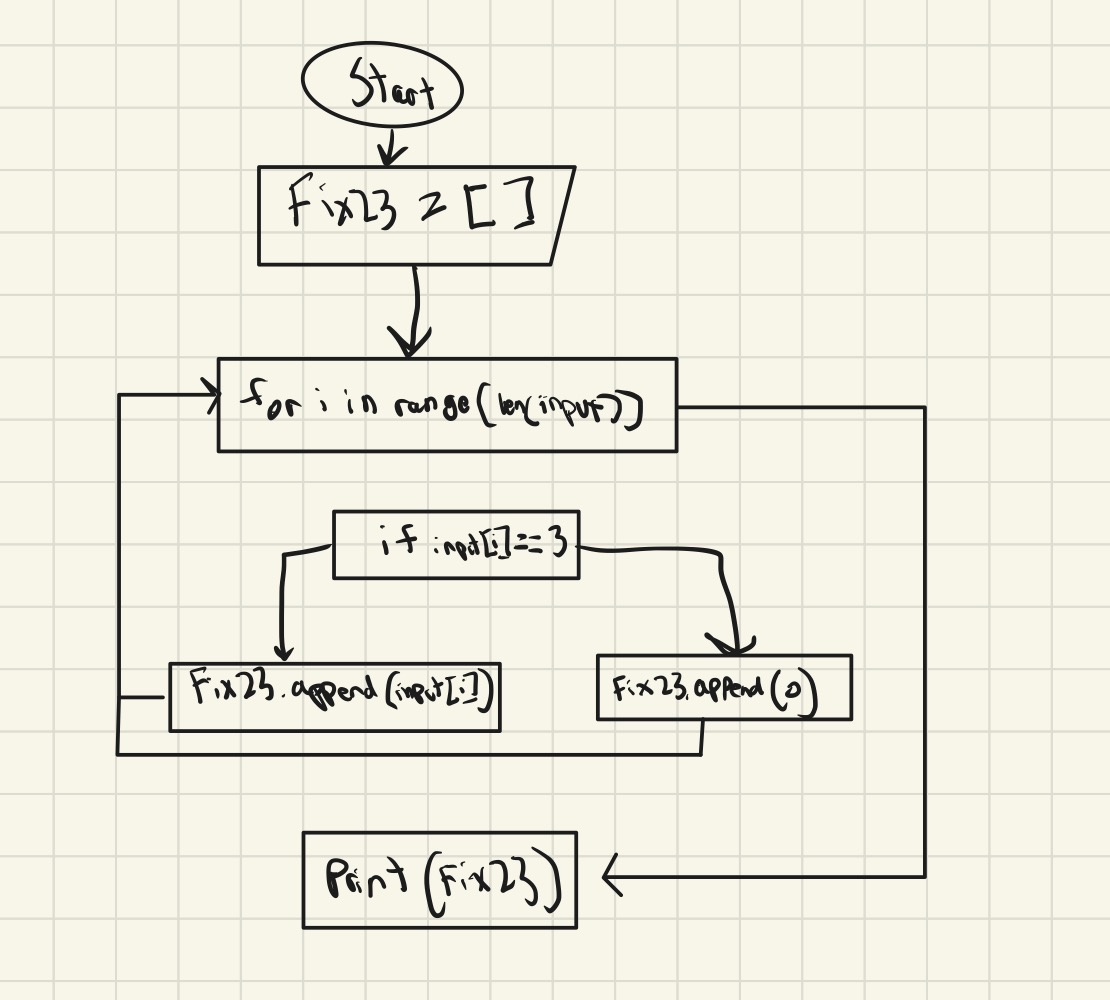 Start
Fix23 = []
for i in range(len(input))
if input[i]==3
Fix23.append(input[i])
Fix23.append(0)
Print(Fix23)